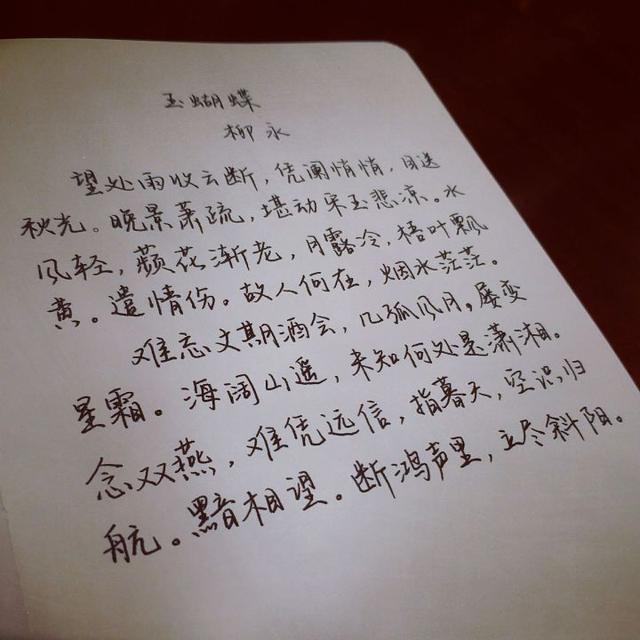 玉蝴蝶
柳永
望处雨收云断，凭阑悄悄，目送
秋光。晚景萧疏，堪动宋玉悲凉。水
风轻，蘋花渐老，月露冷，梧叶飘
黄。遣情伤。故人何在，烟水茫茫。
难忘文期酒会，几孤风月，屡变
星霜。海阔山遥，未知何处是潇湘。
念双燕，难凭远信，指暮天，空识归
航。黯相望。断鸿声里，立尽斜阳。